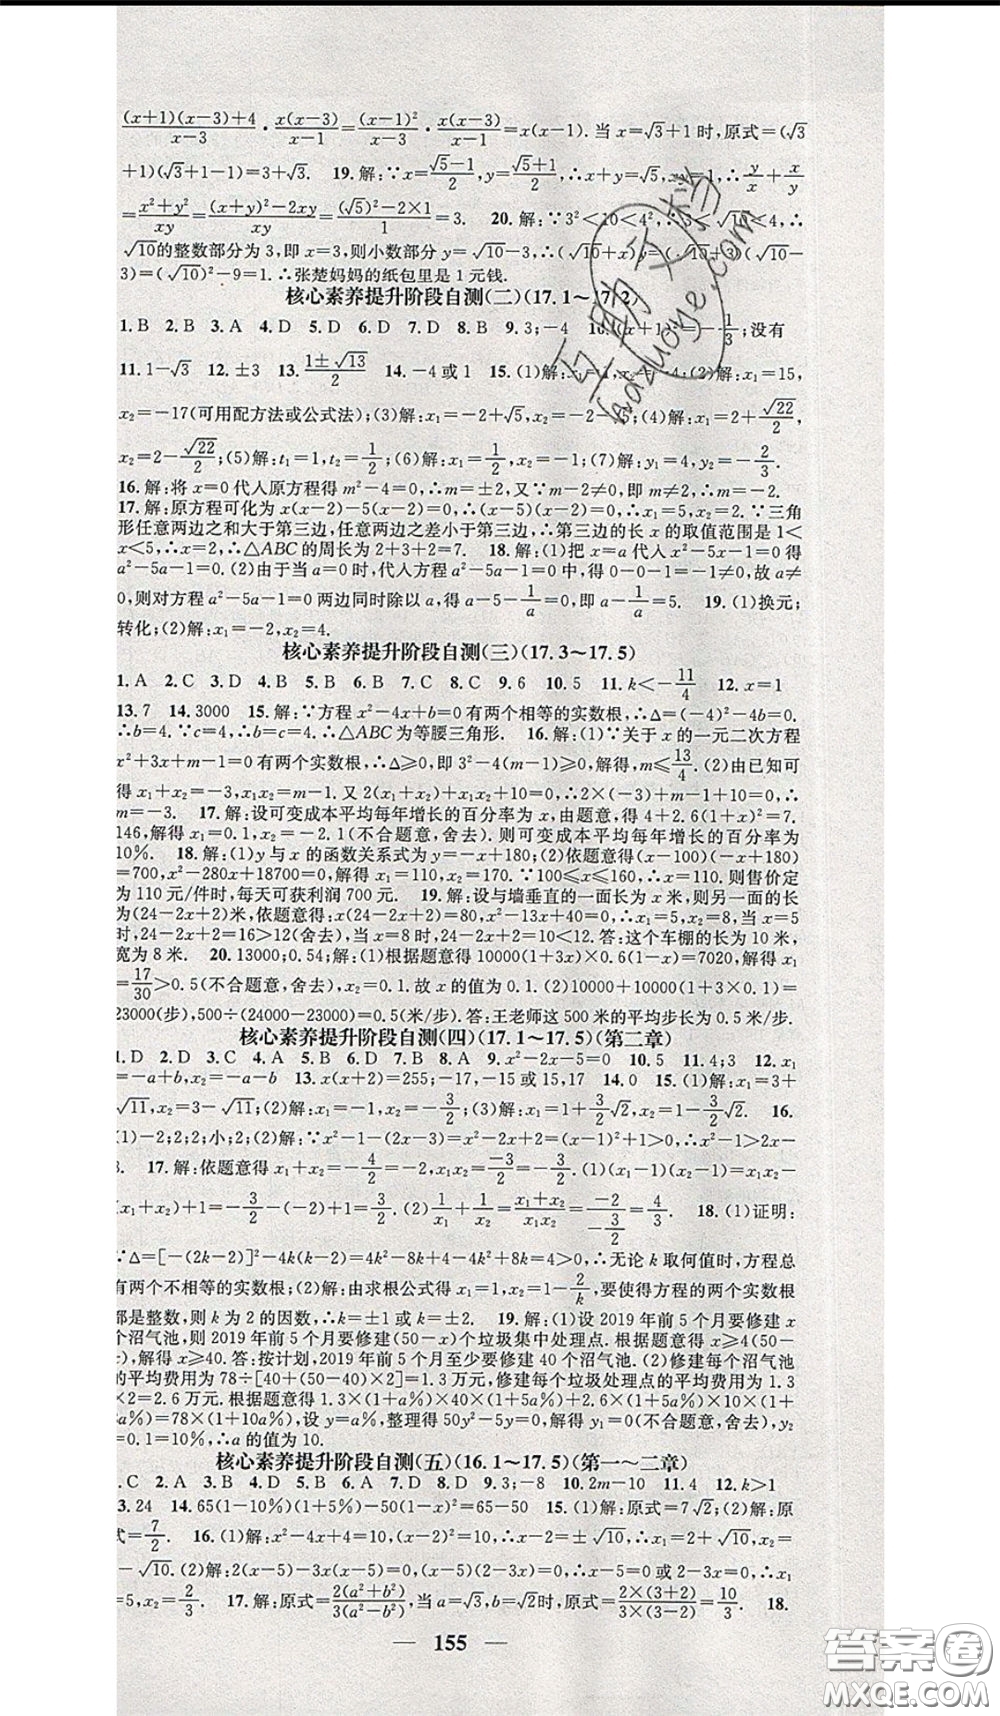 (x+1)(x-3)+4/x-3 · x(x-3)/x-1 = (x-1)²/x-3 · x(x-3)/x-1 = x(x-1). 当 x=√3+1 时,原式=(√3
+1)(√3+1-1)=3+√3. 19. 解:∵x=√5-1/2, y=√5+1/2, ∴x+y=√5, xy=1, ∴y/x+x/y
=x²+y²/xy=(x+y)²-2xy/xy=(√5)²-2×1/1=3. 20. 解:∵3²<10<4²,∴3<√10<4,∴
√10的整数部分为 3,即 x=3,则小数部分 y=√10-3,∴(√10+x)y=(√10+3)(√10-
3)=(√10)²-9=1.∴张楚妈妈的纸包里是 1 元钱.
核心素养提升阶段自测(二)(17.1～17.2)
1. B 2. B 3. A 4. D 5. D 6. D 7. D 8. B 9. 3;-4 10. (x+1)²=-1/3;没有
11. 1-√3 12. ±3 13. 1±√13/2 14. -4 或 1 15. (1)解:x₁=1,x₂=-4;(2)解:x₁=15,
x₂=-17(可用配方法或公式法);(3)解:x₁=-2+√5,x₂=-2-√5;(4)解:x₁=2+√22/2,
x₂=2-√22/2;(5)解:t₁=1,t₂=1/2;(6)解:x₁=1/2,x₂=1;(7)解:y₁=4,y₂=-2/3.
16. 解:将 x=0 代人原方程得 m²-4=0,∴m=±2,又∵m-2≠0,即 m≠2,∴m=-2.
17. 解:原方程可化为 x(x-2)-5(x-2)=0,∴(x-5)(x-2)=0,∴x₁=5,x₂=2.∵三角
形任意两边之和大于第三边,任意两边之差小于第三边,∴第三边的长 x 的取值范围是 1<
x<5,∴x=2,∴△ABC 的周长为 2+3+2=7. 18. 解:(1)把 x=a 代人 x²-5x-1=0 得
a²-5a-1=0.(2)由于当 a=0 时,代人方程 a²-5a-1=0 中,得 0-0-1=0,-1=0,故 a≠
0,则对方程 a²-5a-1=0 两边同时除以 a,得 a-5-1/a=0,即 a-1/a=5. 19. (1)换元;
转化;(2)解:x₁=-2,x₂=4.
核心素养提升阶段自测(三)(17.3～17.5)
1. A 2. C 3. D 4. B 5. B 6. B 7. C 8. C 9. 6 10. 5 11. k<-11/4 12. x=1
13. 7 14. 3000 15. 解:∵方程 x²-4x+b=0 有两个相等的实数根,∴Δ=(-4)²-4b=0.
∴b=4.∵c=4,∴b=c=4.∴△ABC 为等腰三角形. 16. 解:(1)∵关于 x 的一元二次方程
x²+3x+m-1=0 有两个实数根,∴Δ≥0,即 3²-4(m-1)≥0,解得,m≤13/4.(2)由已知可
得 x₁+x₂=-3,x₁x₂=m-1. 又 2(x₁+x₂)+x₁x₂+10=0,∴2×(-3)+m-1+10=0,∴
m=-3. 17. 解:设可变成本平均每年增长的百分率为 x,由题意,得 4+2.6(1+x)²=7.
146,解得 x₁=0.1,x₂=-2.1(不合题意,舍去). 则可变成本平均每年增长的百分率为
10%. 18. 解:(1)y 与 x 的函数关系式为 y=-x+180;(2)依题意得(x-100)(-x+180)
=700,x²-280x+18700=0,∴x₁=110,x₂=170.∵100≤x≤160,∴x=110. 则售价定
为 110 元/件时,每天可获利润 700 元. 19. 解:设与墙垂直的一面长为 x 米,则另一面的长
为(24-2x+2)米,依题意得:x(24-2x+2)=80,x²-13x+40=0,∴x₁=5,x₂=8,当 x=5
时,24-2x+2=16>12(舍去),当 x=8 时,24-2x+2=10<12. 答:这个车棚的长为 10 米,
宽为 8 米. 20. 13000;0.54;解:(1)根据题意得 10000(1+3x)×0.6(1-x)=7020,解得 x₁
=17/30>0.5(不合题意,舍去),x₂=0.1. 故 x 的值为 0.1. (2)10000+10000(1+3×0.1)=
23000(步),500÷(24000-23000)=0.5(米/步). 答:王老师这 500 米的平均步长为 0.5 米/步.
核心素养提升阶段自测(四)(17.1～17.5)(第二章)
1. D 2. D 3. C 4. A 5. A 6. D 7. D 8. A 9. x²-2x-5=0 10. 5 11. 4;3 12. x₁
=-a+b,x₂=-a-b 13. x(x+2)=255;-17,-15 或 15,17 14. 0 15. (1)解:x₁=3+
√11,x₂=3-√11;(2)解:x₁=-1,x₂=-3/2;(3)解:x₁=1+3/2√2,x₂=1-3/2√2. 16.
(1)-2;2;2;小;2;(2)解:∵x²-1-(2x-3)=x²-2x+2=(x-1)²+1>0,∴x²-1>2x-
3. 17. 解:依题意得 x₁+x₂=-4/2=-2,x₁x₂=-3/2=-3/2.(1)(x₁-1)(x₂-1)=x₁x₂-
(x₁+x₂)+1=-3/2-(-2)+1=3/2. (2)1/x₁+1/x₂=x₁+x₂/x₁x₂=-2/-3/2=4/3. 18. (1)证明:
∵Δ=[-(2k-2)]²-4k(k-2)=4k²-8k+4-4k²+8k=4>0,∴无论 k 取何值时,方程总
有两个不相等的实数根;(2)解:由求根公式得 x₁=1,x₂=1-2/k,要使得方程的两个实数根
都是整数,则 k 为 2 的因数,∴k=±1 或 k=±2. 19. 解:(1)设 2019 年前 5 个月要修建 x
个沼气池,则 2019 年前 5 个月要修建(50-x)个垃圾集中处理点. 根据题意得 x≥4(50-
x),解得 x≥40. 答:按计划,2019 年前 5 个月至少要修建 40 个沼气池. (2)修建每个沼气池
的平均费用为 78÷[40+(50-40)×2]=1.3万元,修建每个垃圾处理点的平均费用为 1.3
×2=2.6 万元. 根据题意得 1.3×(1+a%)×40×(1+5a%)+2.6×(1+5a%)×10×(1+
8a%)=78×(1+10a%),设 y=a%,整理得 50y²-5y=0,解得 y₁=0(不合题意,舍去),y₂
=0.1=10%,∴a 的值为 10.
核心素养提升阶段自测(五)(16.1～17.5)(第一～二章)
1. C 2. A 3. B 4. D 5. D 6. A 7. D 8. D 9. 3;-8 10. 2m-10 11. 4 12. k>1
13. 24 14. 65(1-10%)(1+5%)-50(1-x)²=65-50 15. (1)解:原式=7√2;(2)解:原
式=7/2. 16. (1)解:x²-4x+4=10,(x-2)²=10,∴x-2=±√10,∴x₁=2+√10,x₂=
2-√10. (2)解:2(x-5)-3x(x-5)=0,(x-5)(2-3x)=0,∴x-5=0 或 2-3x=0,∴x₁
=5,x₂=2/3. 17. 解:原式=2(a²+b²)/3(a²-b²),当 a=√3,b=√2时,原式=2×(3+2)/3×(3-2)=10/3. 18.
155
互助文档
hdzuoye.com
答案卷
MXQE.COM